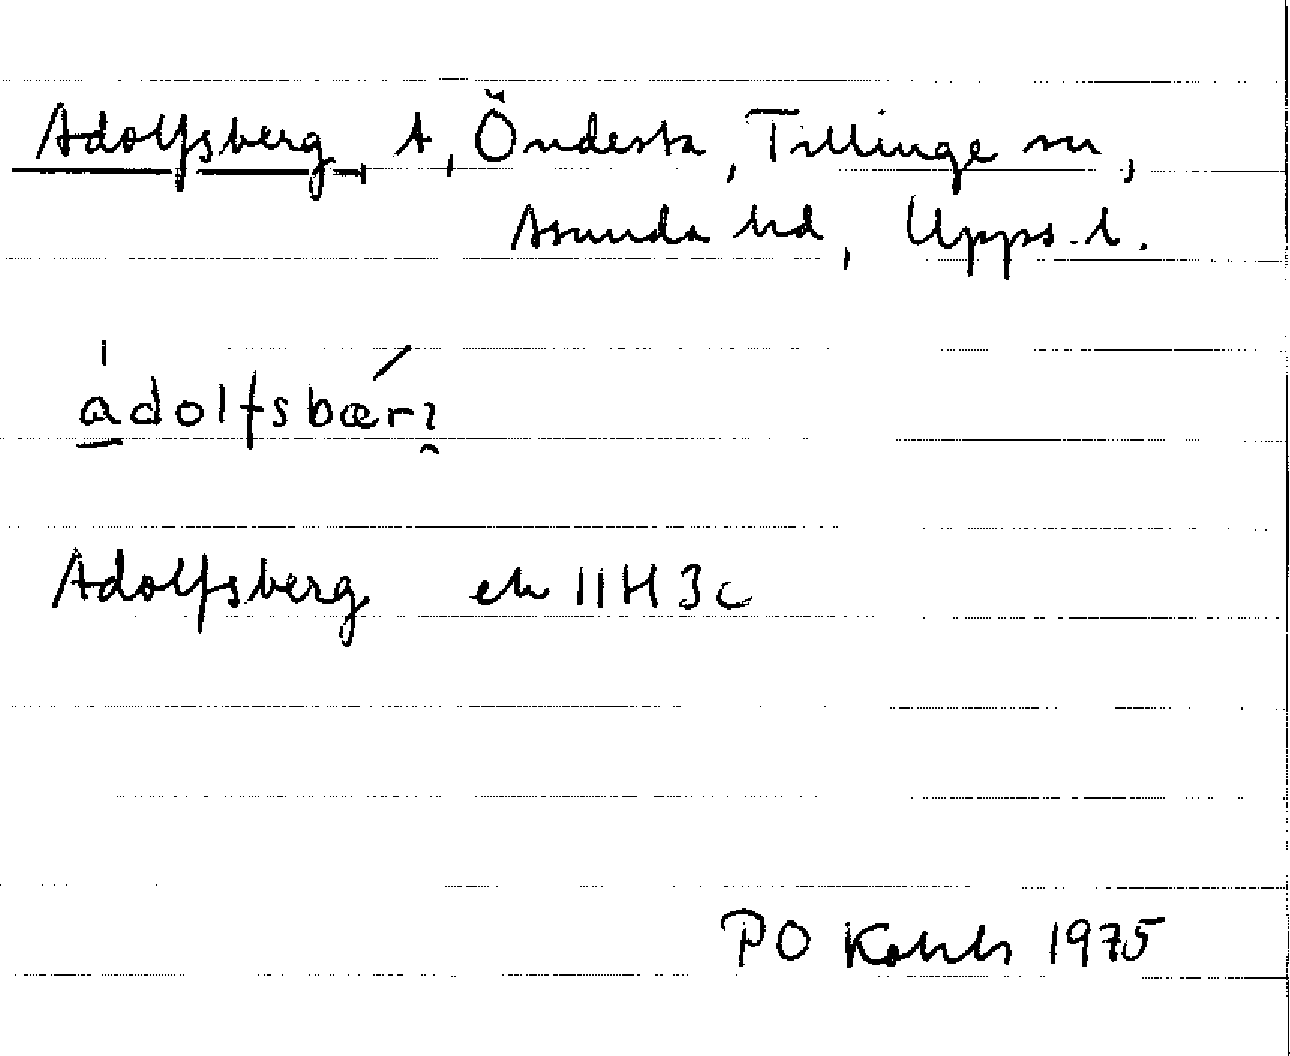 Adolfsberg, t, Öndesta, Tillinge sn,
Åsunda hd, Upps. l.
àdolfsbærɿ
Adolfsberg ek 11H 3c
PO 1975